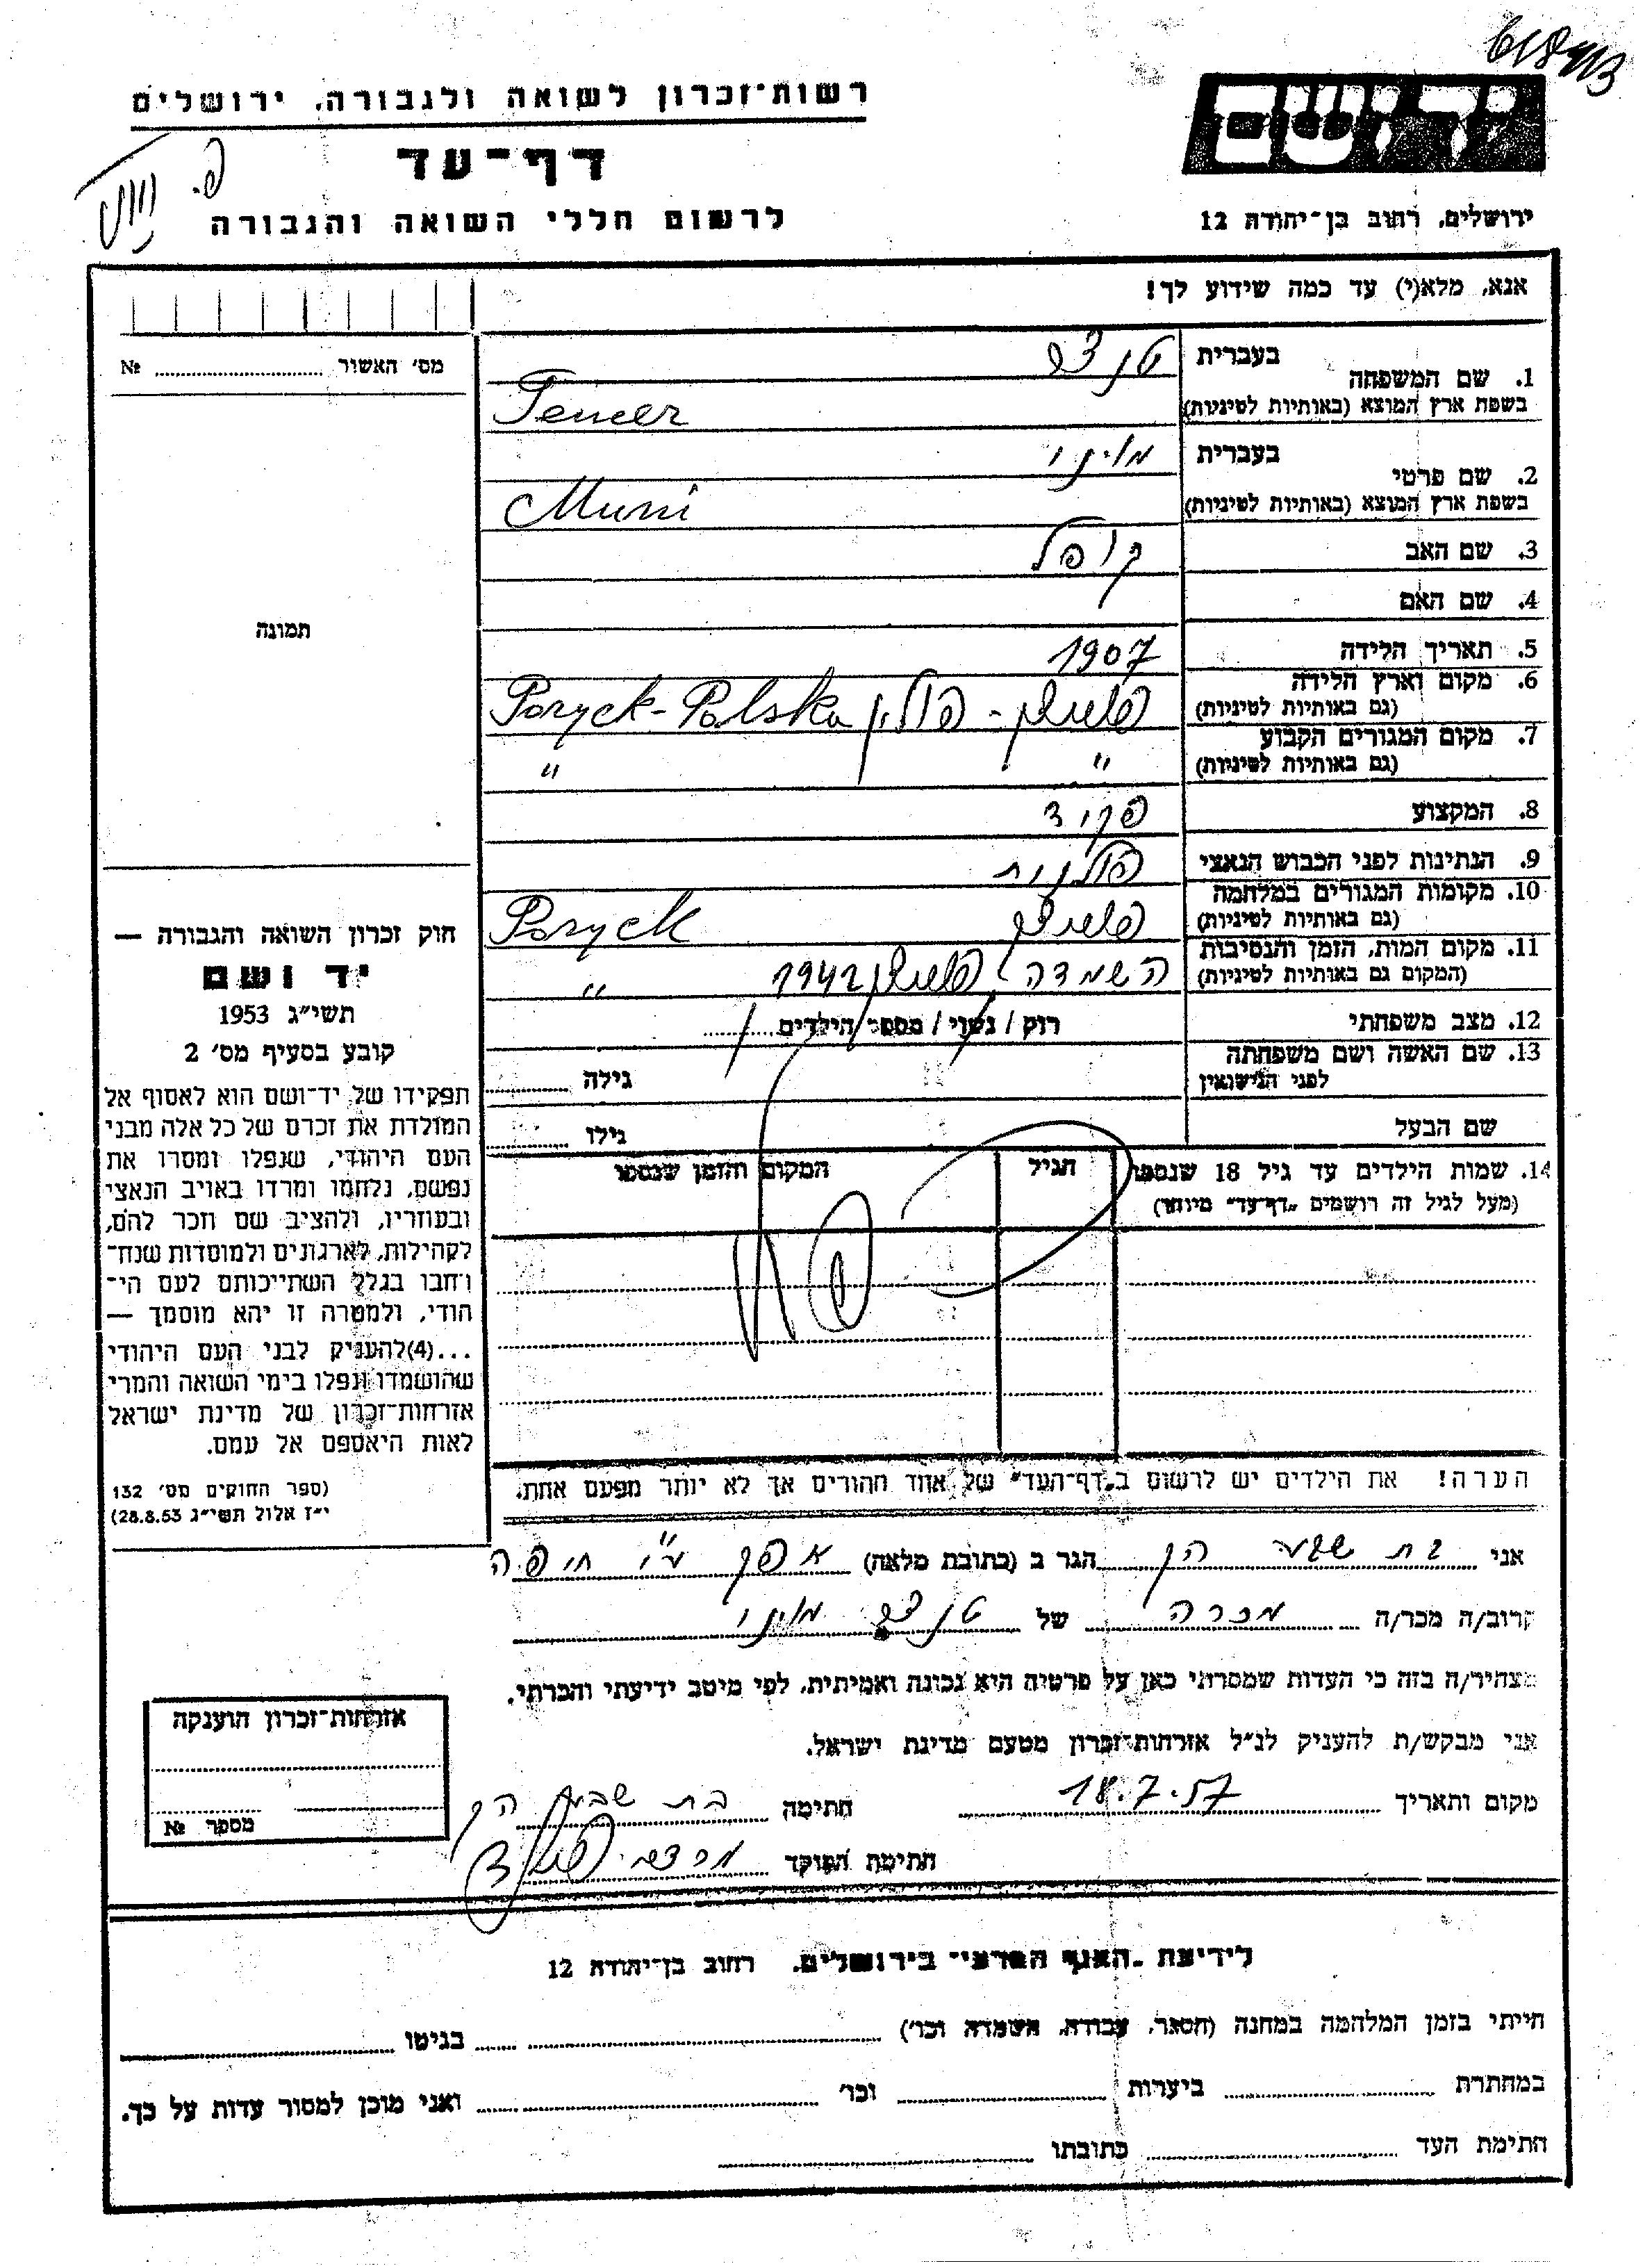 רשות־זכרון לשואה ולגבורה, ירושלים
יד ושם
דף־עד
לרשום חללי השואה והגבורה
ירושלים, רחוב בן־יהודה 12
אנא, מלא(י) עד כמה שידוע לך!
מס׳ האשור № 
1. שם המשפחה
בעברית טנצר
בשפת ארץ המוצא (באותיות לטיניות) Tencer
2. שם פרטי
בעברית מוני
בשפת ארץ המוצא (באותיות לטיניות) Muni
3. שם האב קופל
4. שם האם
5. תאריך הלידה 1907
6. מקום וארץ הלידה
(גם באותיות לטיניות) פוריצק - פולין Poryck-Polska
7. מקום המגורים הקבוע
(גם באותיות לטיניות) " "
8. המקצוע פקיד
9. הנתינות לפני הכבוש הנאצי פולנית
10. מקומות המגורים במלחמה
(גם באותיות לטיניות) פוריצק Poryck
11. מקום המות, הזמן והנסיבות
(המקום גם באותיות לטיניות) השמדה - פוריצק 1942 "
12. מצב משפחתי רוק / נשוי / מספר הילדים
13. שם האשה ושם משפחתה
לפני הנישואין גילה
שם הבעל גילו
14. שמות הילדים עד גיל 18 שנספו הגיל המקום והזמן שנספו
(מעל לגיל זה רושמים „דף־עד״ מיוחד)
תמונה
חוק זכרון השואה והגבורה —
יד ושם
תשי״ג 1953
קובע בסעיף מס׳ 2
תפקידו של יד־ושם הוא לאסוף אל
המולדת את זכרם של כל אלה מבני
העם היהודי, שנפלו ומסרו את
נפשם, נלחמו ומרדו באויב הנאצי
ובעוזריו, ולהציב שם וזכר להם,
לקהילות, לארגונים ולמוסדות שנח־
רבו בגלל השתייכותם לעם הי־
הודי, ולמטרה זו יהא מוסמך —
...(4) להעניק לבני העם היהודי
שהושמדו ונפלו בימי השואה והמרי
אזרחות־זכרון של מדינת ישראל
לאות היאספם אל עמם.
(ספר החוקים מס׳ 132
י״ז אלול תשי״ג 28.8.53)
הערה! את הילדים יש לרשום ב„דף־העד״ של אחד ההורים אך לא יותר מפעם אחת.
אני בת שבע הגר ב (כתובת מלאה) חיפה
קרוב/ה מכר/ה מכרה של טנצר מוני
מצהיר/ה בזה כי העדות שמסרתי כאן על פרטיה היא נכונה ואמיתית, לפי מיטב ידיעתי והכרתי.
אני מבקש/ת להעניק לנ״ל אזרחות־זכרון מטעם מדינת ישראל.
מקום ותאריך 18.7.57 חתימה בת שבע
חתימת הפוקד
אזרחות־זכרון הוענקה
מספר №
לידיעת „האגף המדעי״ בירושלים, רחוב בן־יהודה 12
הייתי בזמן המלחמה במחנה (הסגר, עבודה, השמדה וכו׳) בגיטו
במחתרת ביערות וכו׳ ואני מוכן למסור עדות על כך.
חתימת העד כתובתו